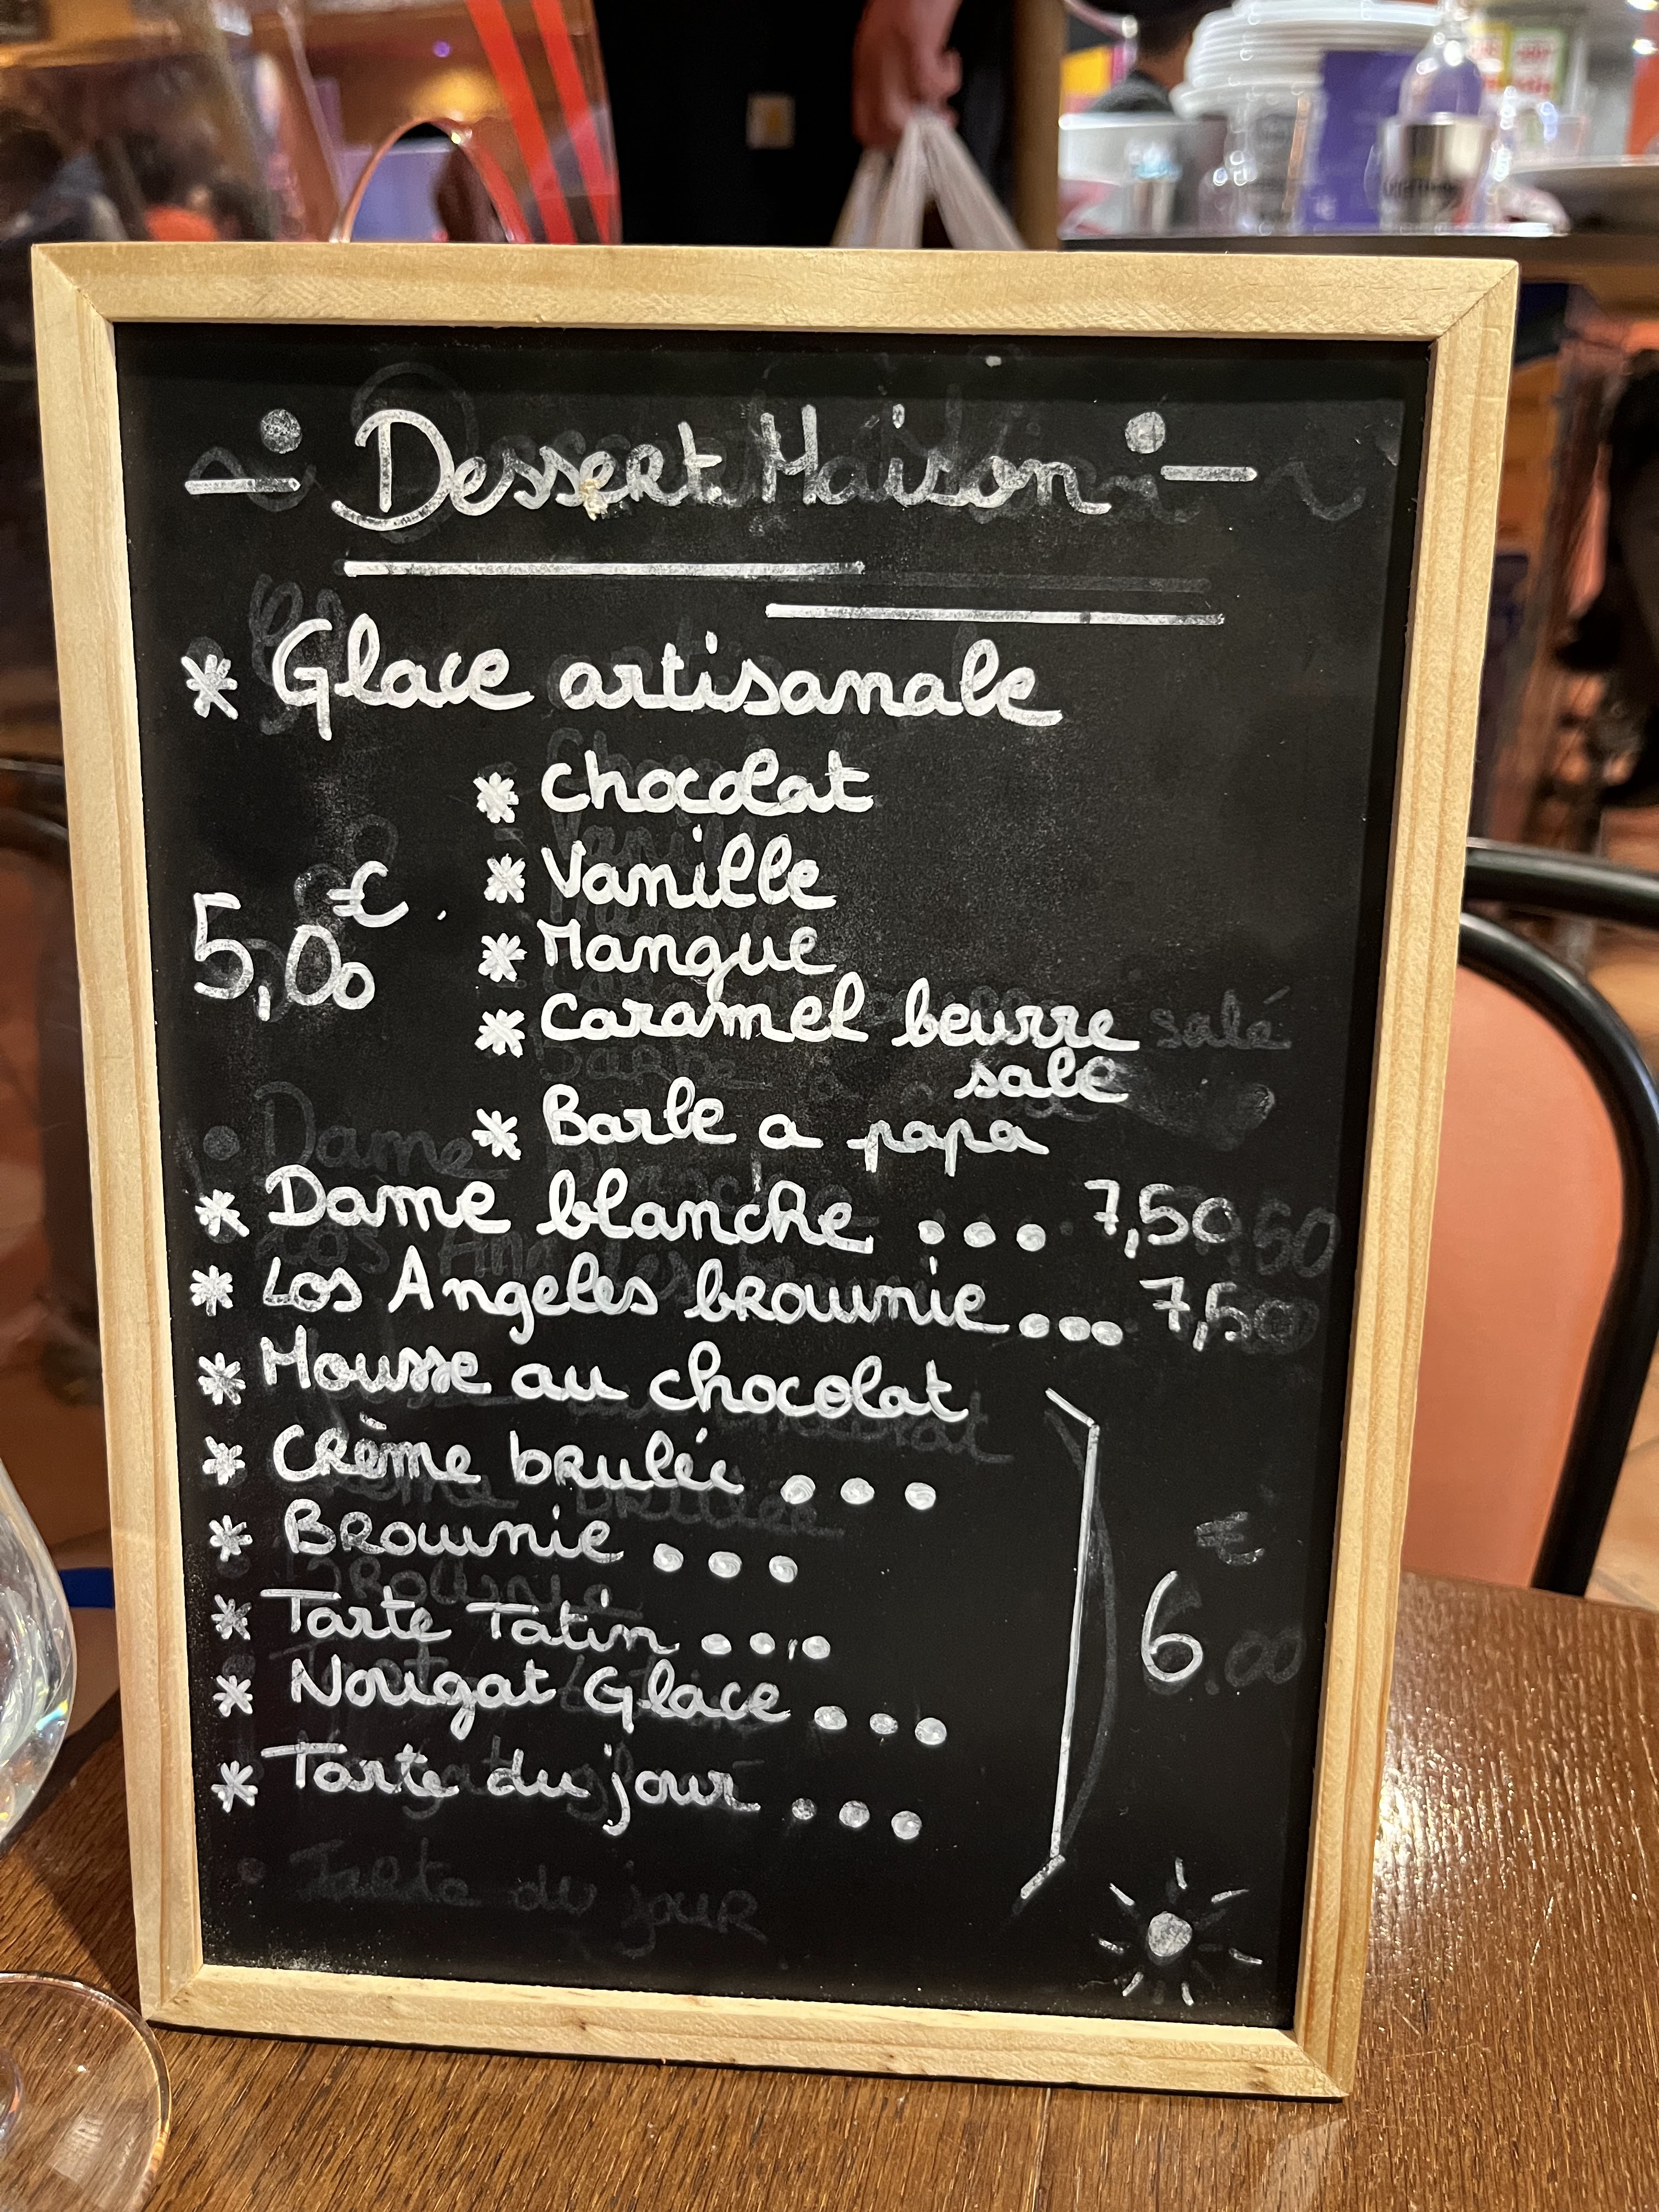 Dessert Maison
* Glace artisanale
* Chocolat
* Vanille
5,00€
* Mangue
* Caramel beurre
salé
* Barbe a papa
* Dame blanche ... 7,50
* Los Angeles brownie... 7,50
* Mousse au chocolat
* Crème brulée ...
* Brownie ...
* Tarte Tatin ...
* Nougat Glace ...
* Tarte du jour ...
6€